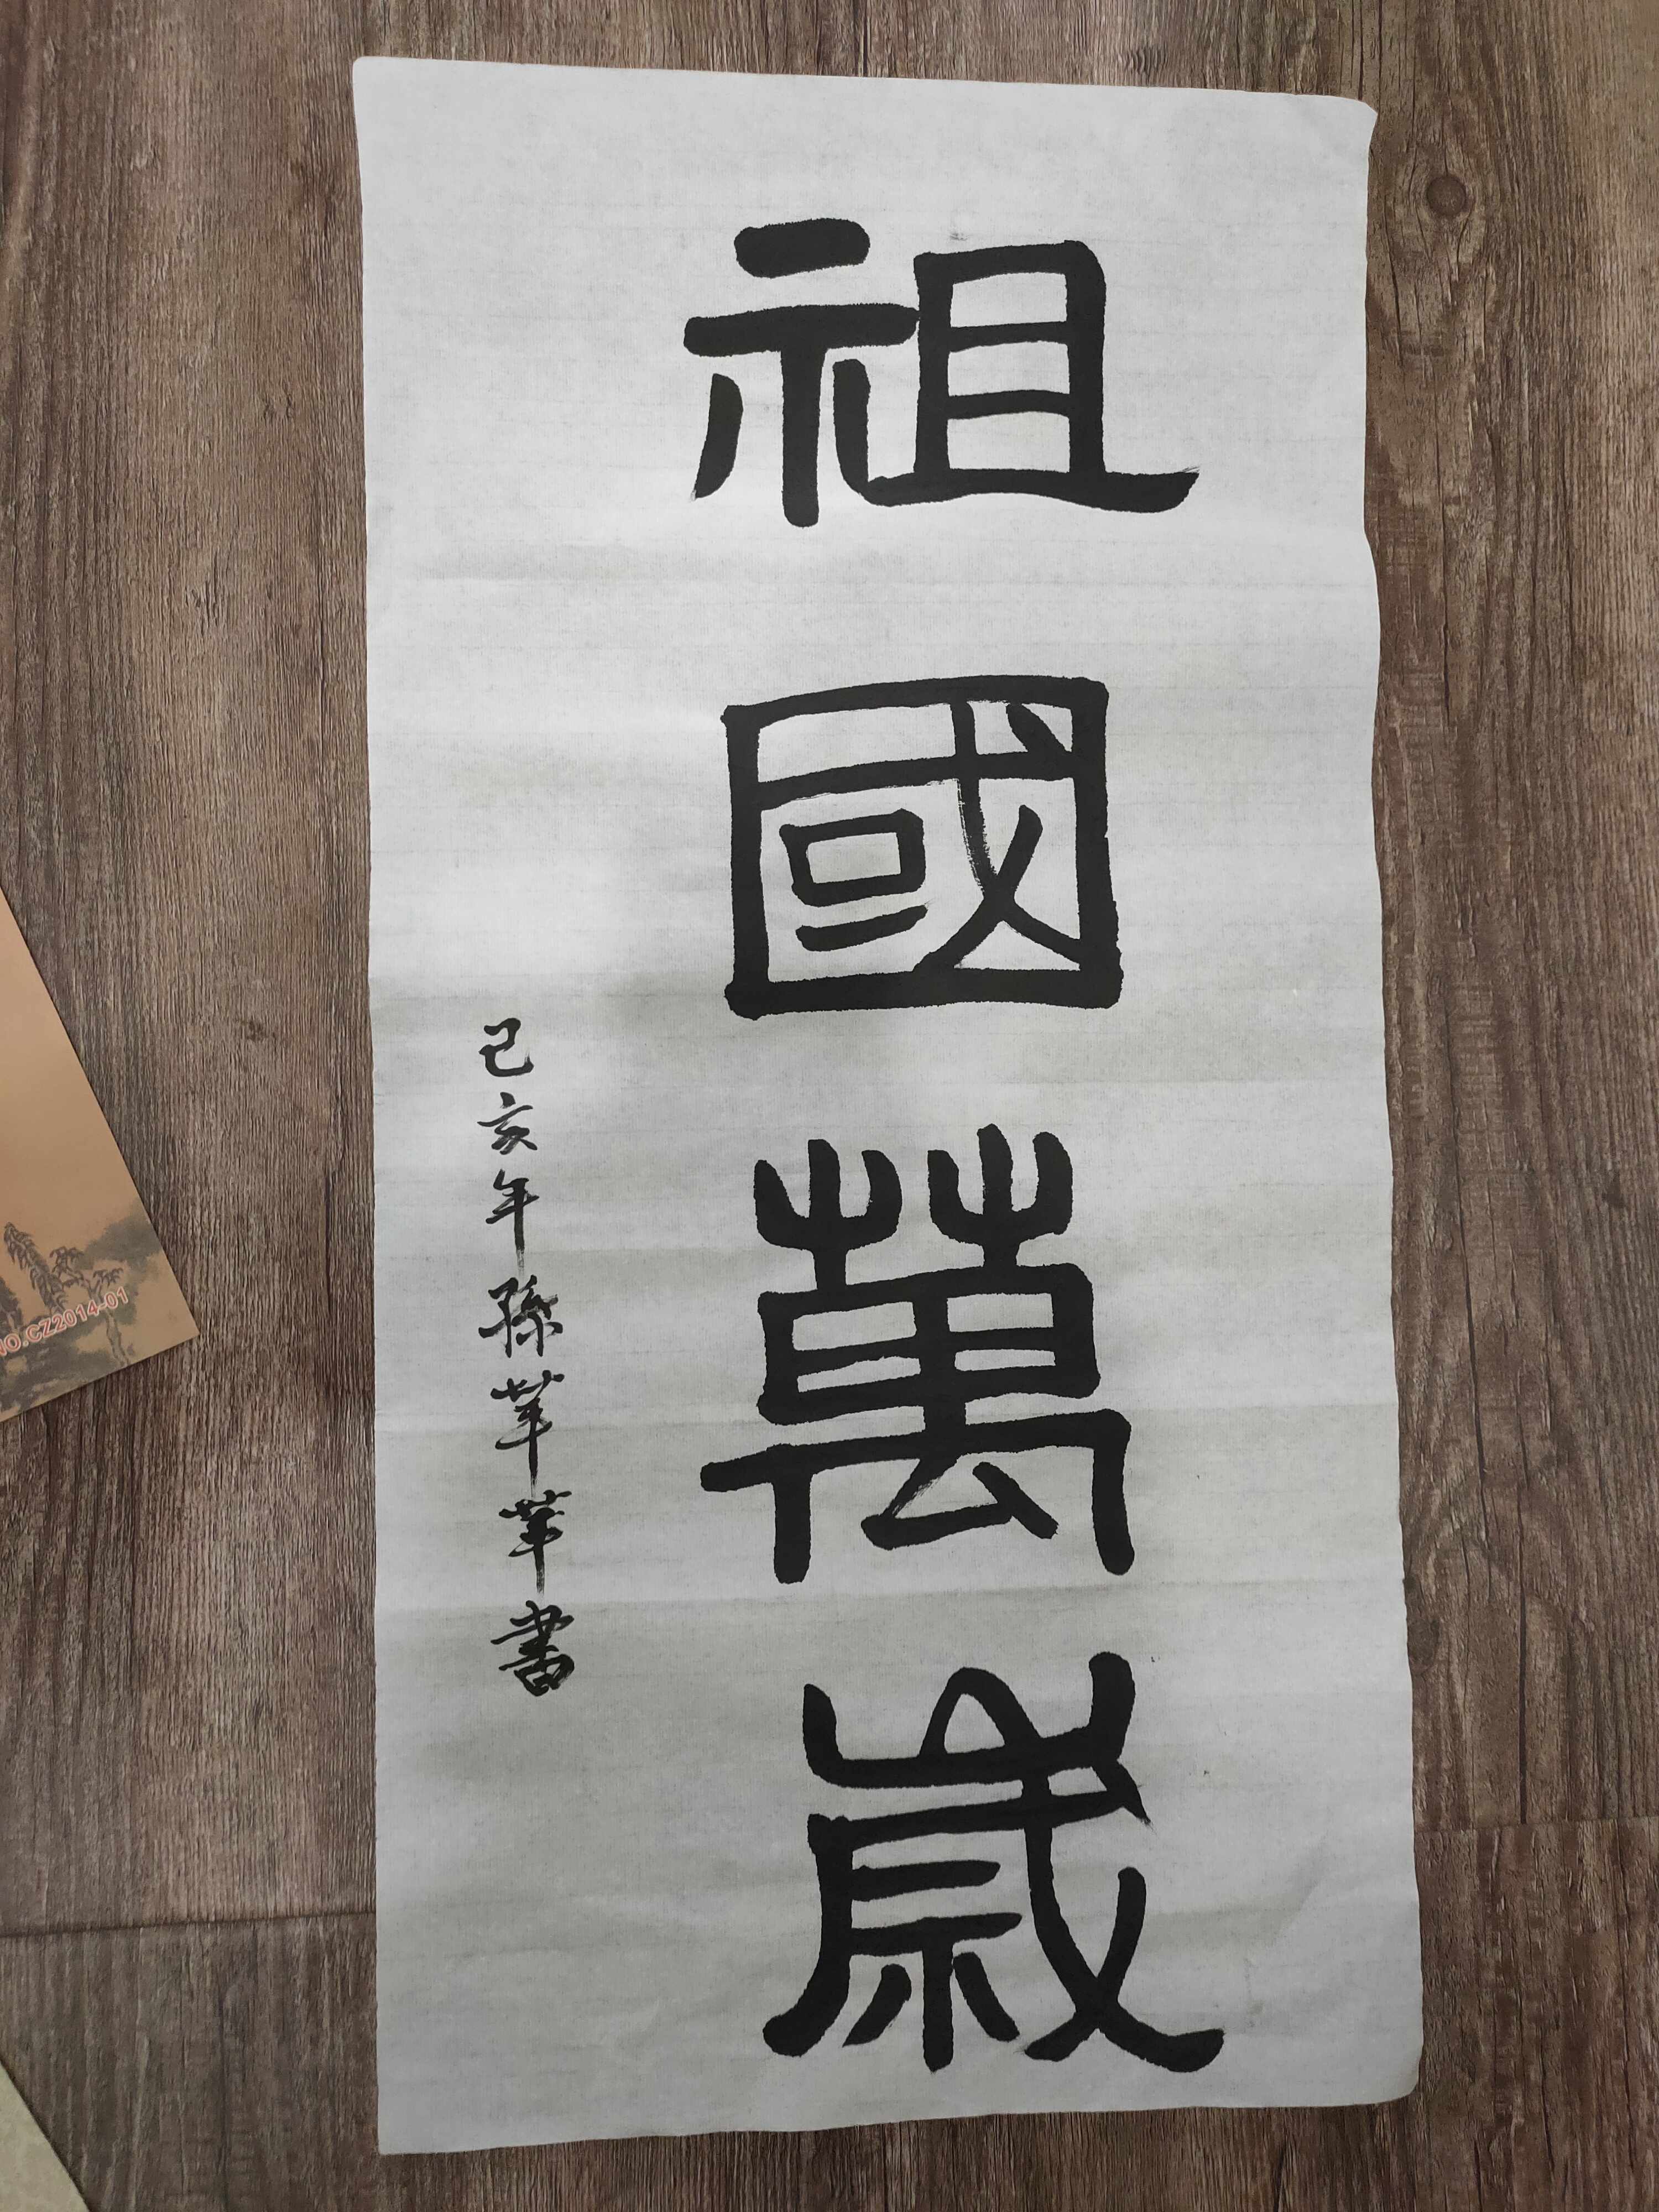 祖國萬歲
己亥年孫苹苹書
NO.CZ2014-01